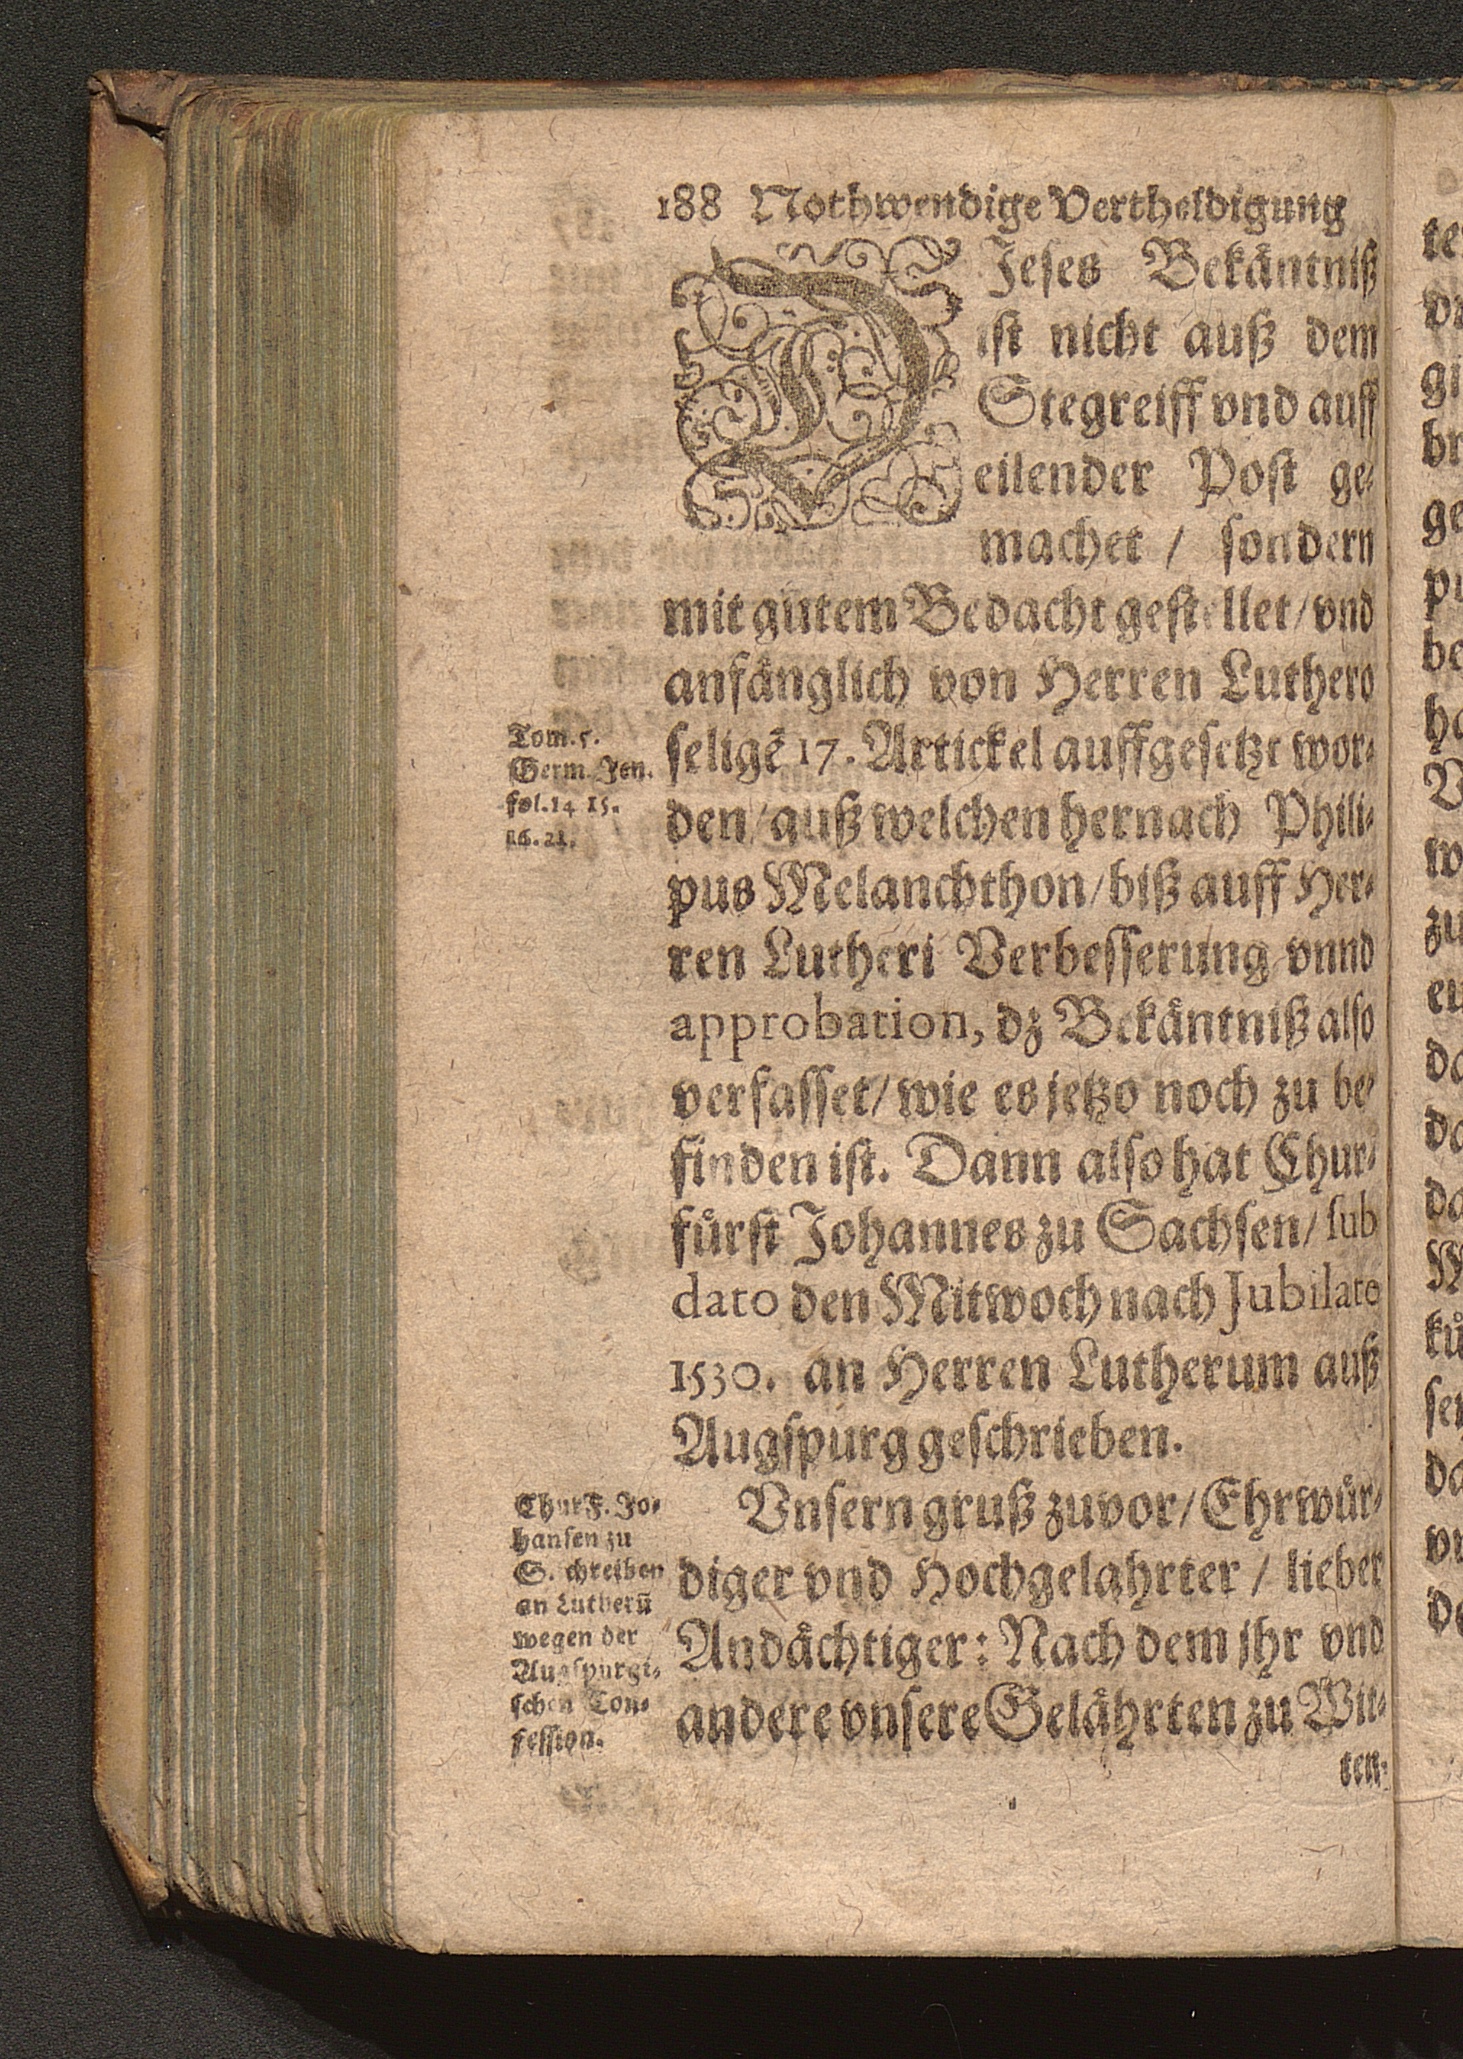 188 Nothwendige Vertheidigung
DJeses Bekäntniß
ist nicht auß dem
Stegreiff vnd auff
eilender Post ge-
machet / sondern
mit gutem Bedacht gestellet / vnd
anfänglich von Herren Luthero
seligẽ 17. Artickel auffgesetzt wor-
den / auß welchen hernach Phili-
pus Melanchthon / biß auff Her-
ren Lutheri Verbesserung vnnd
approbation, dz Bekäntniß also
verfasset / wie es jetzo noch zu be-
finden ist. Dann also hat Chur-
fürst Johannes zu Sachsen / sub
dato den Mitwoch nach Jubilate
1530. an Herren Lutherum auß
Augspurg geschrieben.
Vnsern gruß zuvor / Ehrwür-
diger vnd Hochgelahrter / lieber
Andächtiger: Nach dem jhr vnd
andere vnsere Gelährten zu Wit-
ten-
Tom. 5.
Germ. Jen.
fol. 14 15.
16. 21.
ChurF. Jo-
hansen zu
S. chreiben
an Lutherũ
wegen der
Augspurgi-
schen Con-
fession.